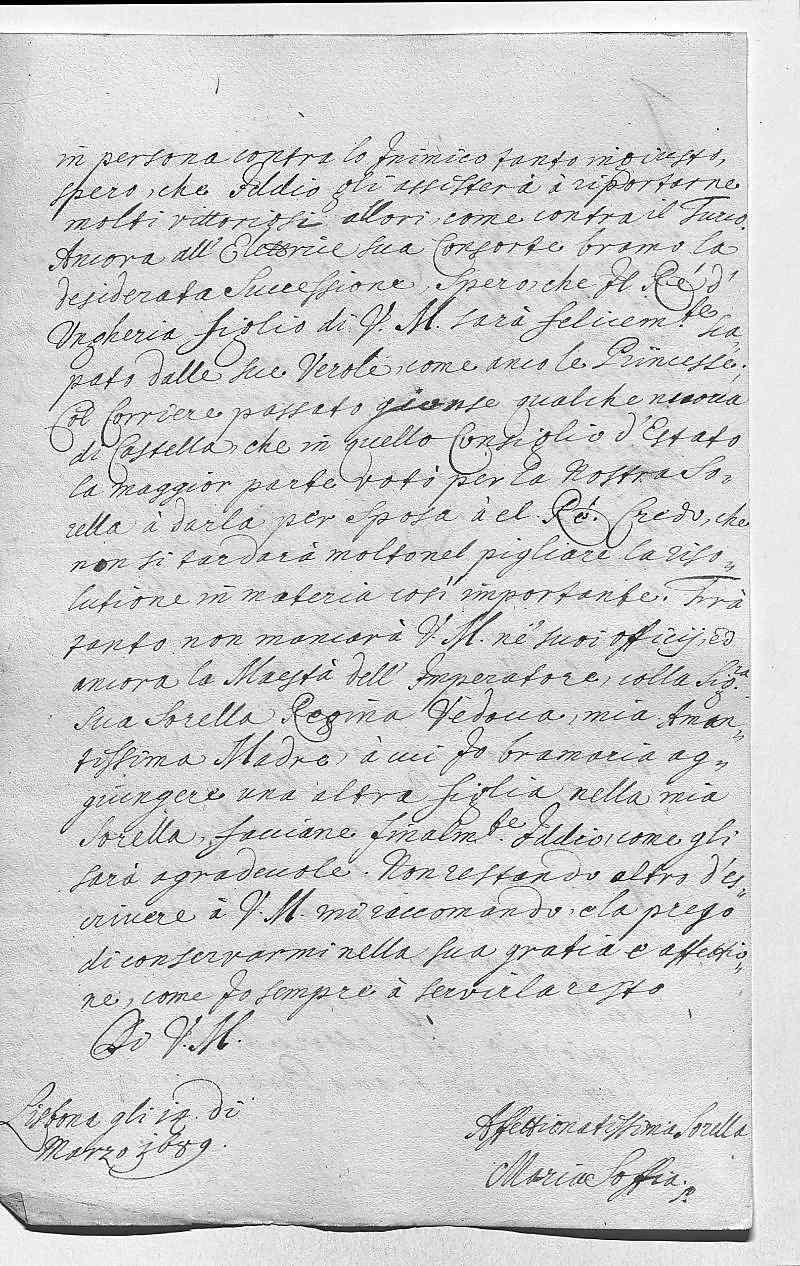 in persona contra lo Inimico tanto ingiusto,
spero, che Iddio gli assisterà à riportarne
molti vittoriosi allori, come contra il Turco.
Ancora all' Elettrice sua Consorte bramo la
desiderata Successione, Spero, che Il Ré d'
Ungheria figlio di V. M. sarà felicem.te sca„
pato dalle sue Verole, come anco le Principesse,
Col Corriere passato giunse qualche nuova
di Castella, che in quello Consiglio d'Estato
la maggior parte votò per la Nostra So„
rella à darla per sposa à el Ré. Credo, che
non si tardarà molto nel pigliare la riso„
lutione in materia così importante. Frà
tanto non mancarà V. M. ne' suoi officij, ed
ancora la Maestà dell' Imperatore, colla Sig.ra
sua Sorella Regina Vedoua, mia Aman„
tissima Madre, à cui Io bramaria ag„
giungere una altra figlia nella mia
Sorella, facciane finalm.te Iddio, come gli
sarà agradeuole. Non restando altro d'es„
crivere à V. M. mi raccomando, e la prego
di conservarmi nella sua gratia e affettio„
ne, come Io sempre à servirla resto
Di V. M.
Lisbona gli 14 di
Marzo 1689.
Affettionatissima Sorella
Maria Soffia